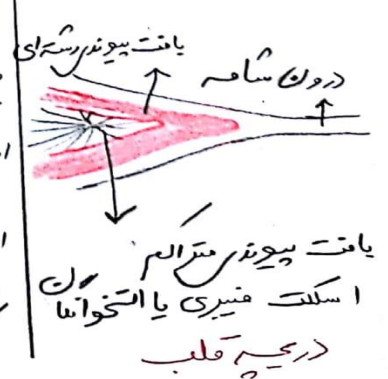 بافت پیوندی رشته‌ای
درون شامه
بافت پیوندی متراکم
اسکلت فیبری یا استخوانشان
دریچه قلب